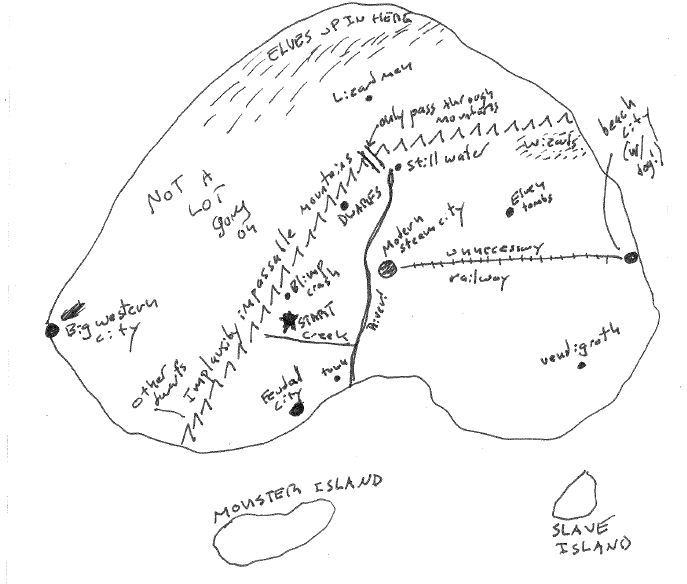 ELVES UP IN HERE
Lizard men
only pass through
mountains
beach
city
(w/
dog!)
Wizards
Still water
NOT A
LOT
going
on
Implausibly impassable mountains
DWARES
Elven
tombs
Modern
steam city
unnecessary
railway
Blimp
crash
START
Creek
River!
Big western
city
Other
dwarfs
Feudal
city
town
vendigroth
MONSTER ISLAND
SLAVE
ISLAND